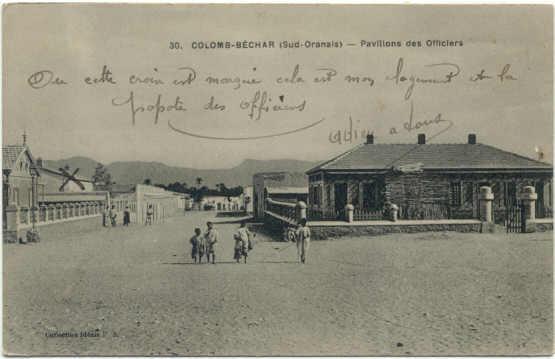 30. COLOMB-BÉCHAR (Sud-Oranais) — Pavillons des Officiers
Ou cette croix est marquée cela est mon logement et la
popote des officiers
adieu a tous
Collection Idéale P. S.